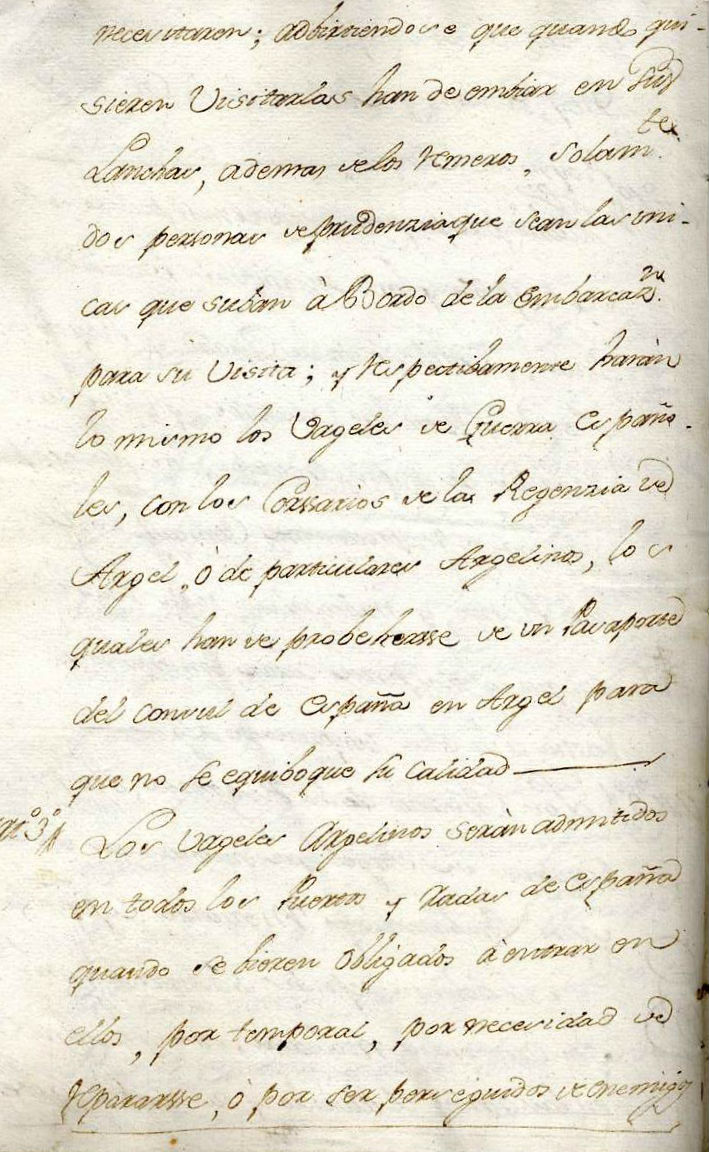 necesitaren; adbirtiendose que quando qui-
sieren Visitarlas han de embiar en sus
Lanchas, ademas de los Remeros, solam.te
dos personas de prudenzia que sean las uni-
cas que suban à Bordo de la Embarcaz.n
para su Visita; y Respectibamente haràn
lo mismo los Vageles de Guerra Españo-
les, con los Corsarios de la Regenzia de
Argel, ò de particulares Argelinos, los
quales han de probeherse de un Pasaporte
del Consul de España en Argel para
que no se equiboque su calidad
art.o 3.o
Los Vageles Argelinos seràn admitidos
en todos los Puertos y Radas de España
quando se bieren obligados à entrar en
ellos, por temporal, por necesidad de
Repararse, ò por ser perseguidos de enemigos